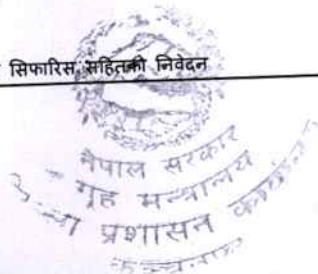 सिफारिस सहितको निवेदन
नेपाल सरकार
गृह मन्त्रालय
प्रशासन